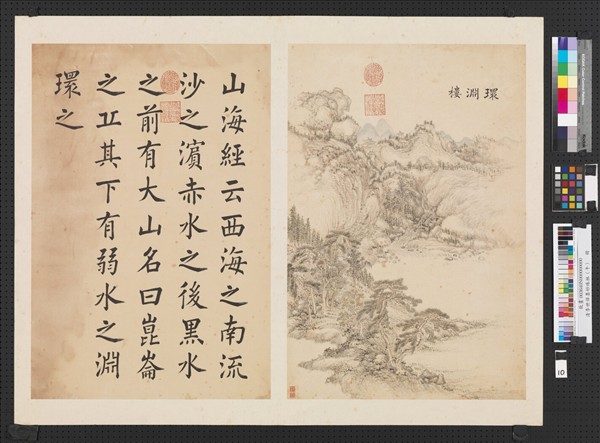 環淵樓
山海經云西海之南流
沙之濵赤水之後黒水
之前有大山名曰崑崙
之丘其下有弱水之淵
環之
10